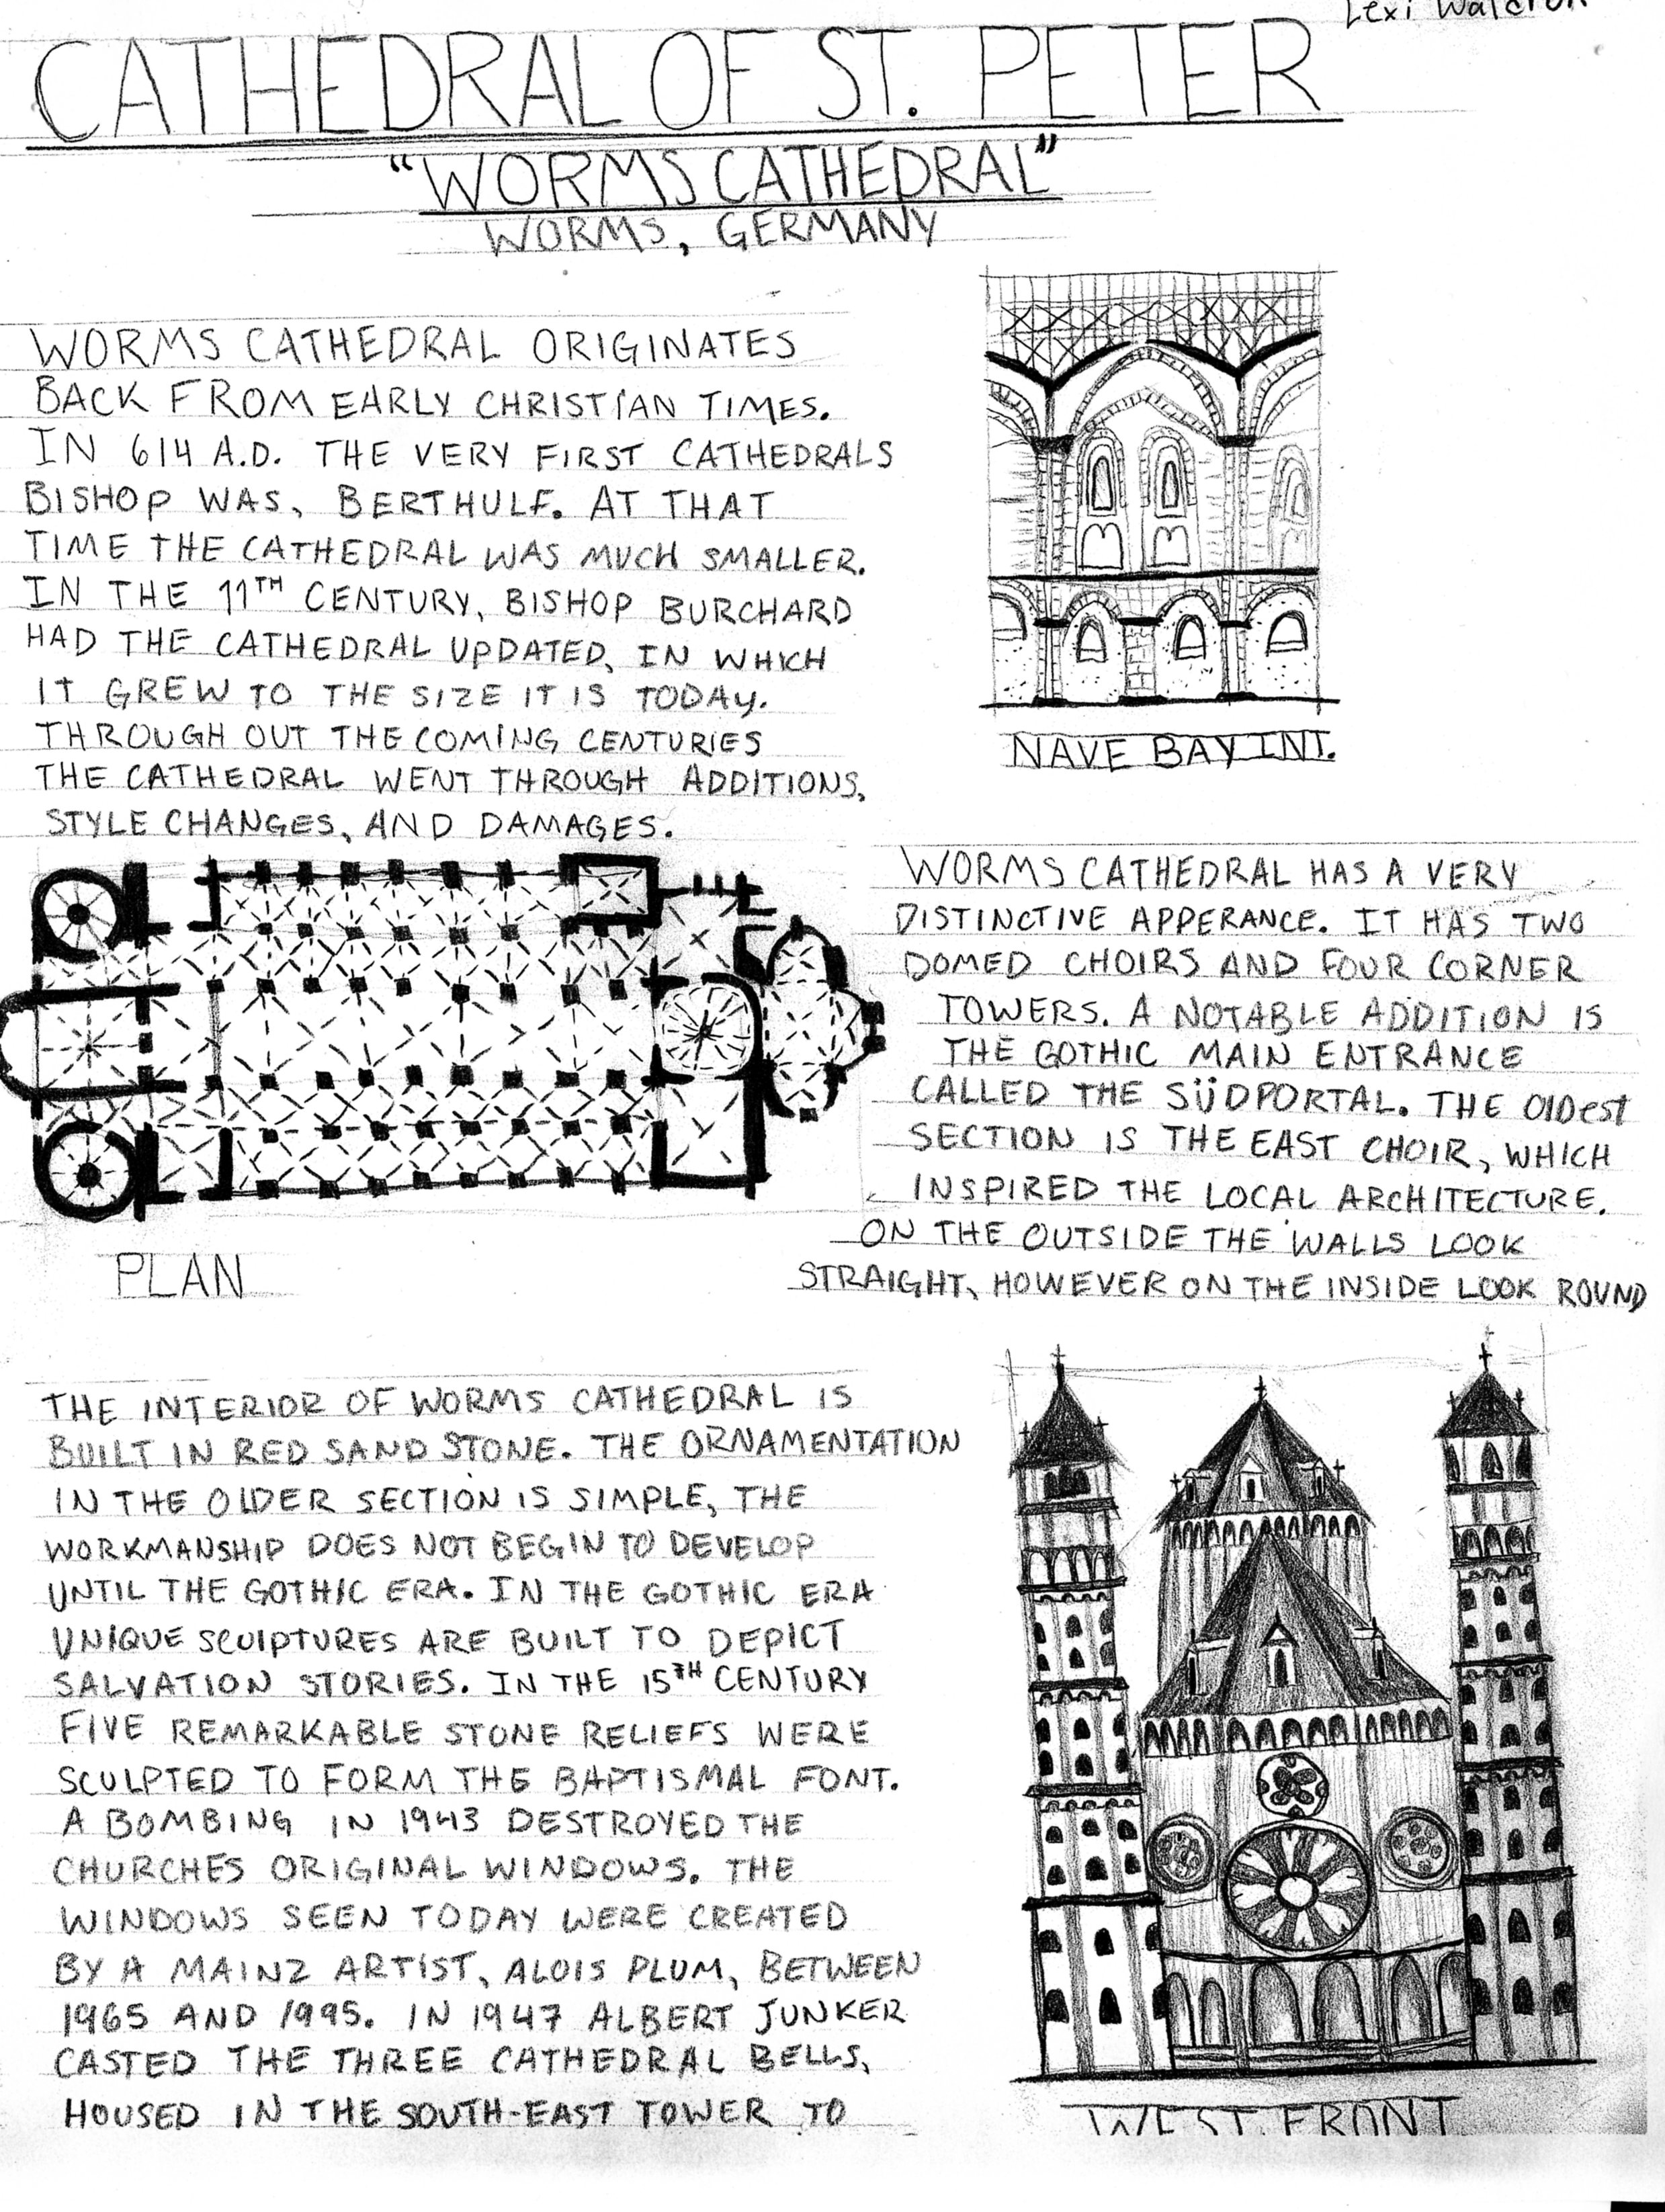 Lexi Waldron
CATHEDRAL OF ST. PETER
"WORMS CATHEDRAL"
WORMS, GERMANY
WORMS CATHEDRAL ORIGINATES
BACK FROM EARLY CHRISTIAN TIMES.
IN 614 A.D. THE VERY FIRST CATHEDRALS
BISHOP WAS, BERTHULF. AT THAT
TIME THE CATHEDRAL WAS MUCH SMALLER.
IN THE 11TH CENTURY, BISHOP BURCHARD
HAD THE CATHEDRAL UPDATED, IN WHICH
IT GREW TO THE SIZE IT IS TODAY.
THROUGH OUT THE COMING CENTURIES
THE CATHEDRAL WENT THROUGH ADDITIONS,
STYLE CHANGES, AND DAMAGES.
NAVE BAY INT.
WORMS CATHEDRAL HAS A VERY
DISTINCTIVE APPERANCE. IT HAS TWO
DOMED CHOIRS AND FOUR CORNER
TOWERS. A NOTABLE ADDITION IS
THE GOTHIC MAIN ENTRANCE
CALLED THE SÜDPORTAL. THE OlDEST
SECTION IS THE EAST CHOIR, WHICH
INSPIRED THE LOCAL ARCHITECTURE.
ON THE OUTSIDE THE WALLS LOOK
STRAIGHT, HOWEVER ON THE INSIDE LOOK ROUND
PLAN
THE INTERIOR OF WORMS CATHEDRAL IS
BUILT IN RED SAND STONE. THE ORNAMENTATION
IN THE OLDER SECTION IS SIMPLE, THE
WORKMANSHIP DOES NOT BEGIN TO DEVELOP
UNTIL THE GOTHIC ERA. IN THE GOTHIC ERA
UNIQUE SCULPTURES ARE BUILT TO DEPICT
SALVATION STORIES. IN THE 15TH CENTURY
FIVE REMARKABLE STONE RELIEFS WERE
SCULPTED TO FORM THE BAPTISMAL FONT.
A BOMBING IN 1943 DESTROYED THE
CHURCHES ORIGINAL WINDOWS. THE
WINDOWS SEEN TODAY WERE CREATED
BY A MAINZ ARTIST, ALOIS PLUM, BETWEEN
1965 AND 1995. IN 1947 ALBERT JUNKER
CASTED THE THREE CATHEDRAL BELLS,
HOUSED IN THE SOUTH-EAST TOWER TO
WEST FRONT